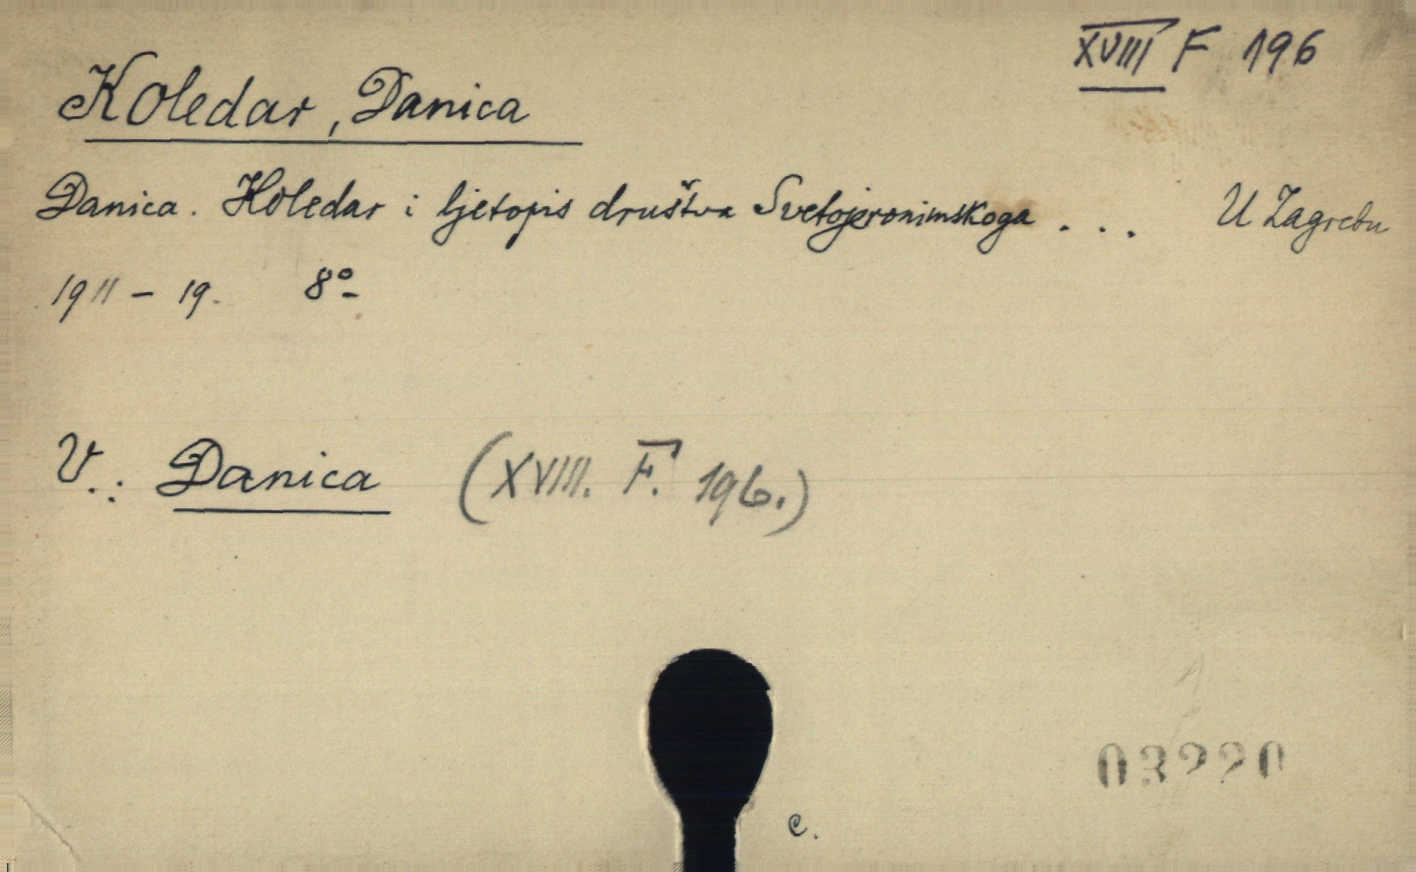 XVIII F 196
Koledar, Danica
Danica. Koledar i ljetopis društva Svetojeronimskoga . . . U Zagrebu
1911 – 19. 8º
V.: Danica (XVIII. F. 196.)
03220
c.